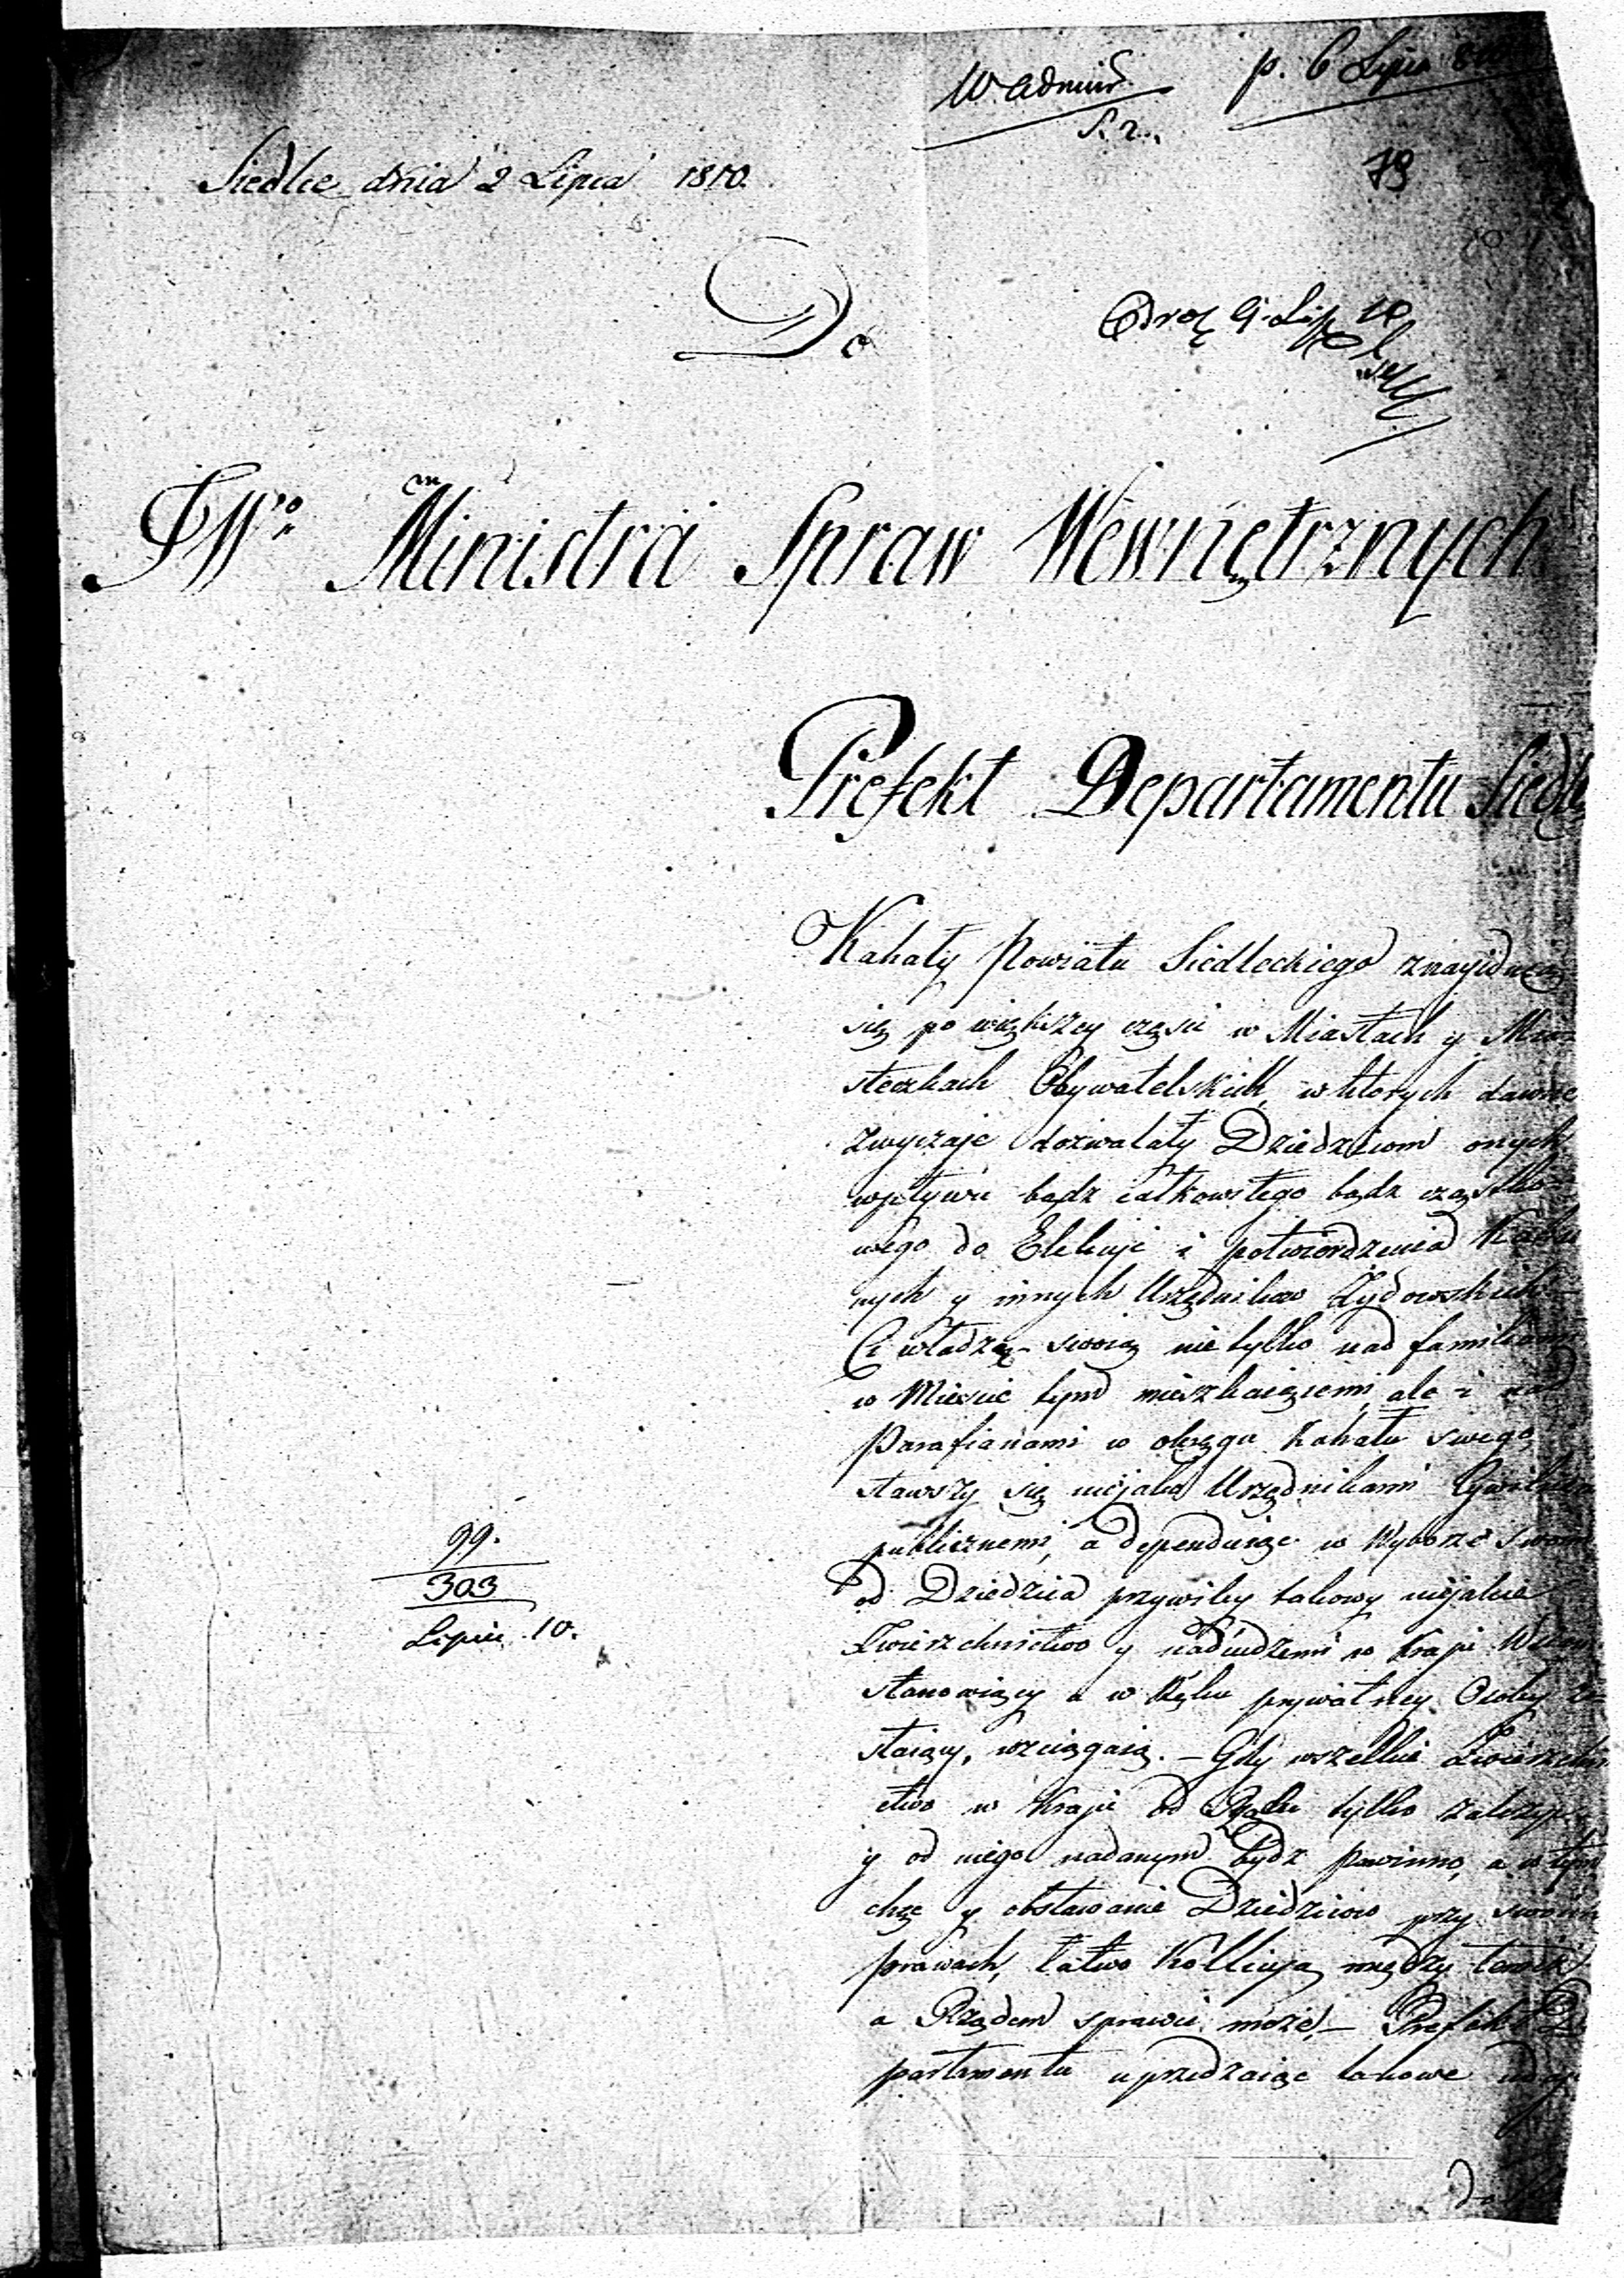 W. Admin.
p. 6 Lipca
Siedlce dnia 2 Lipca 1810.
79
Do
9. Lip. 10
JWo. Ministra Spraw Wewnętrznych
Prefekt Departamentu Siedle
Kahały Powiatu Siedleckiego znayduią
się po większey częsci w Miastach y Mia-
steczkach Obywatelskich, w ktorych dawne
zwyczaje dozwalały Dziedzicom onych
wpływu bądz całkowitego bądz cząstko-
wego do Elekcyi i potwierdzenia
nych y innych Urzędnikow Żydowskich
Ci władzę swoią nie tylko nad familiami
w Miescie tym mieszkaiącemi, ale i nad
Parafianami w okręgu Kahału swego
stawszy się niejako Urzędnikami
publicznemi, a dependuiąc w Wyborze swoim
od Dziedzica przywiley takowy niejakie
Zwierzchnictwo y w Kraju
stanowiący a w Ręku prywatney Osoby zo-
staiący, wzciągaią. – Gdy wszelkie Zwierzchni
ctwo w Kraju od Rządu tylko
y od niego nadanym bydz powinno, a w tym
chęć y obstawanie Dziedzicow przy swoich
prawach, łatwo Kollizyą między temiż
a Rządem sprawić może, – Prefekt De
partamentu uprzedzaiąc takowe
99.
303
Lipiec 10.